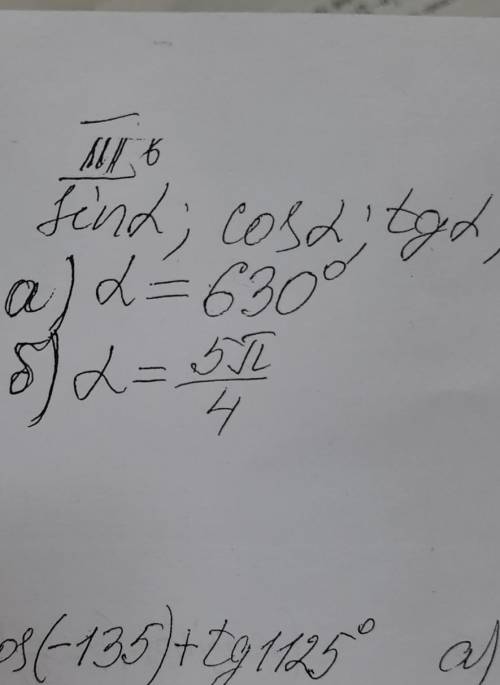 III в
sinα; cosα; tgα,
а) α = 630°
б) α = 5π/4
os(-135)+tg1125° а)